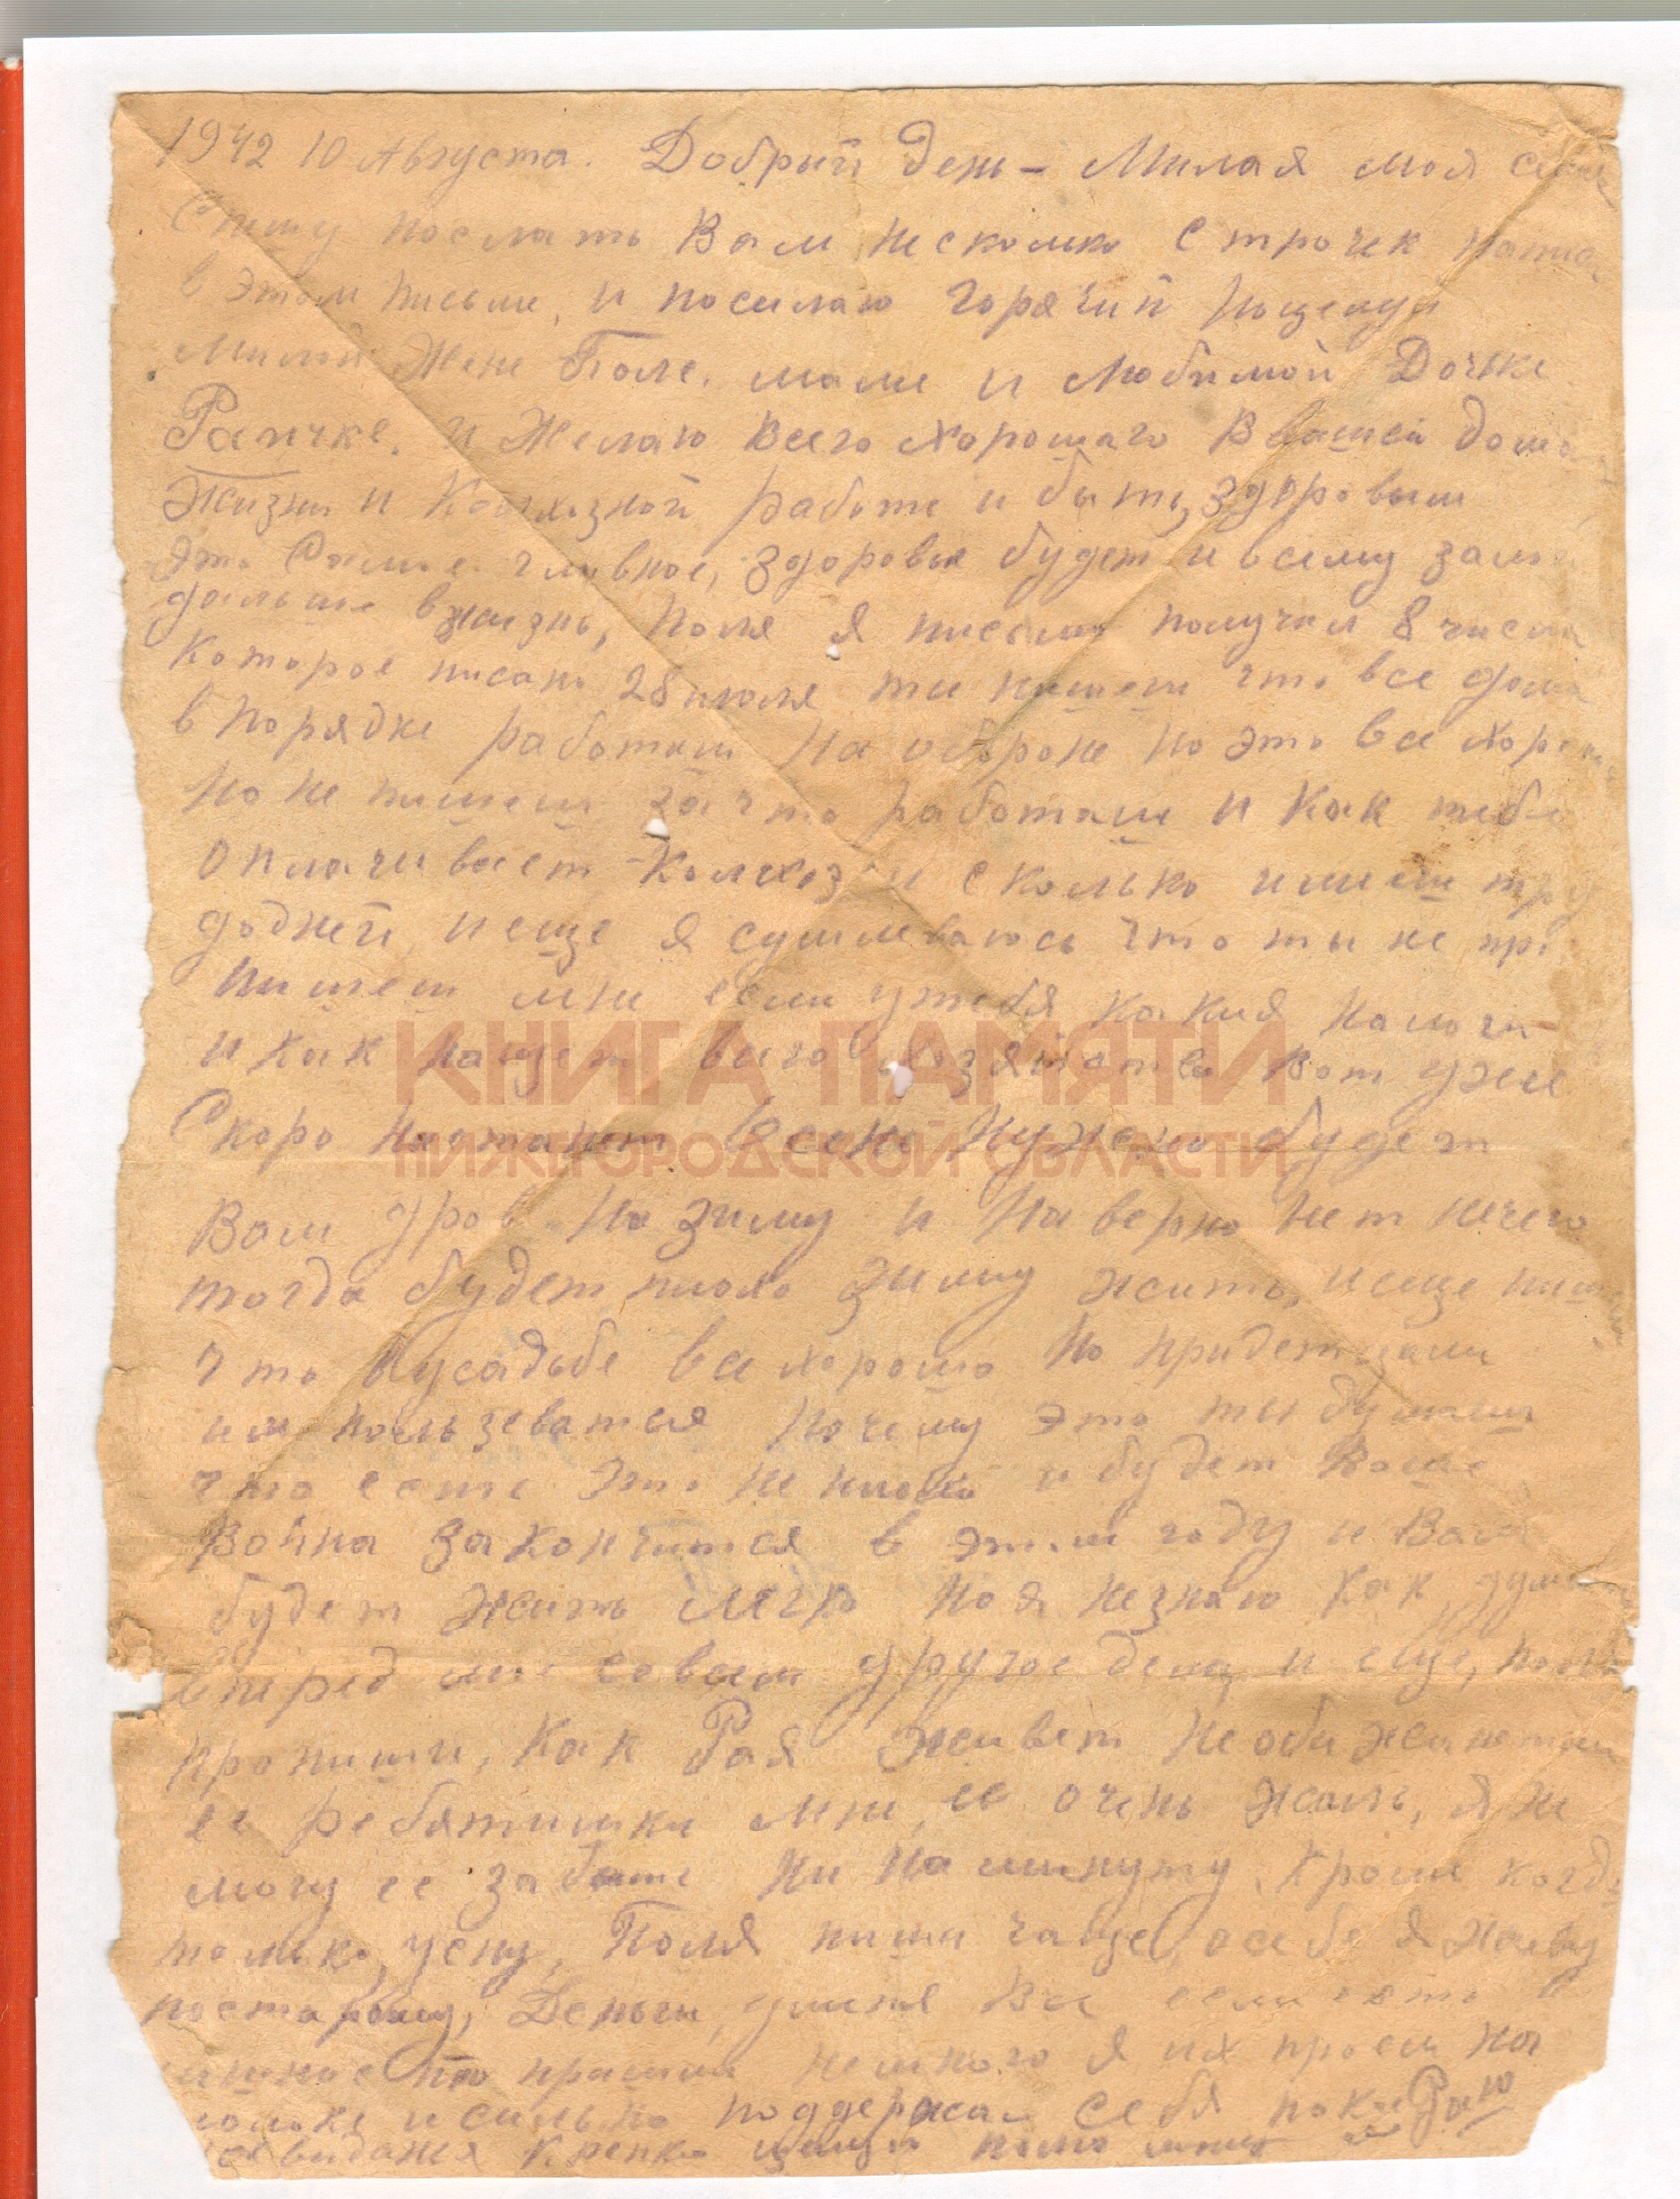 1942 10 Августа. Добрый день – Милая моя
Спишу послать Вам несколько строчек
в этом письме, и посылаю горячий поцелуй
милой Жене Поле, маме и любимой Дочьке
Раичке, и Желаю Всего хорошаго В вашей
Жизни и Колхозной работе и быть здоровым
это Самое главное, здоровье будет и всему
дальше в жизнь, Поля я письмо получил 8 числа
которое писано 28 июля ты пишеш что все дома
в порядке работаш на обороне но это все
но не пишеш за что работаш и Как тебе
оплачивает Колхоз и сколько имееш тру
додней, и еще я сумлеваюсь что ты не
пишеш мне если у тебя какия налоги
и как нащет всего хозяйства Вот уже
Скоро настанет Осень Нужно будет
Вам дров на зиму и на верно нет нечего
тогда будет плохо зиму жить, и еще
что в усадьбе все хорошо но придет
им пользеваться почему это ты думаеш
что есть это не плохо и будет Ваше
Война закончится в этом году и Вам
будет жить легко но я незнаю как
вперед мне совсем другое дело, и еще, Поля
пропиши, Как Рая живет не обижают
ее ребятишки мне ее очень жаль, я не
могу ее забыть ни на минуту, кроме когда
только усну, Поля пиши чаще, о себе я живу
постарому, Деньги, у меня все
немного я их проел на
молоке и сильно поддержал себя пока
досвиданя Крепко целую
КНИГА ПАМЯТИ
НИЖЕГОРОДСКОЙ ОБЛАСТИ